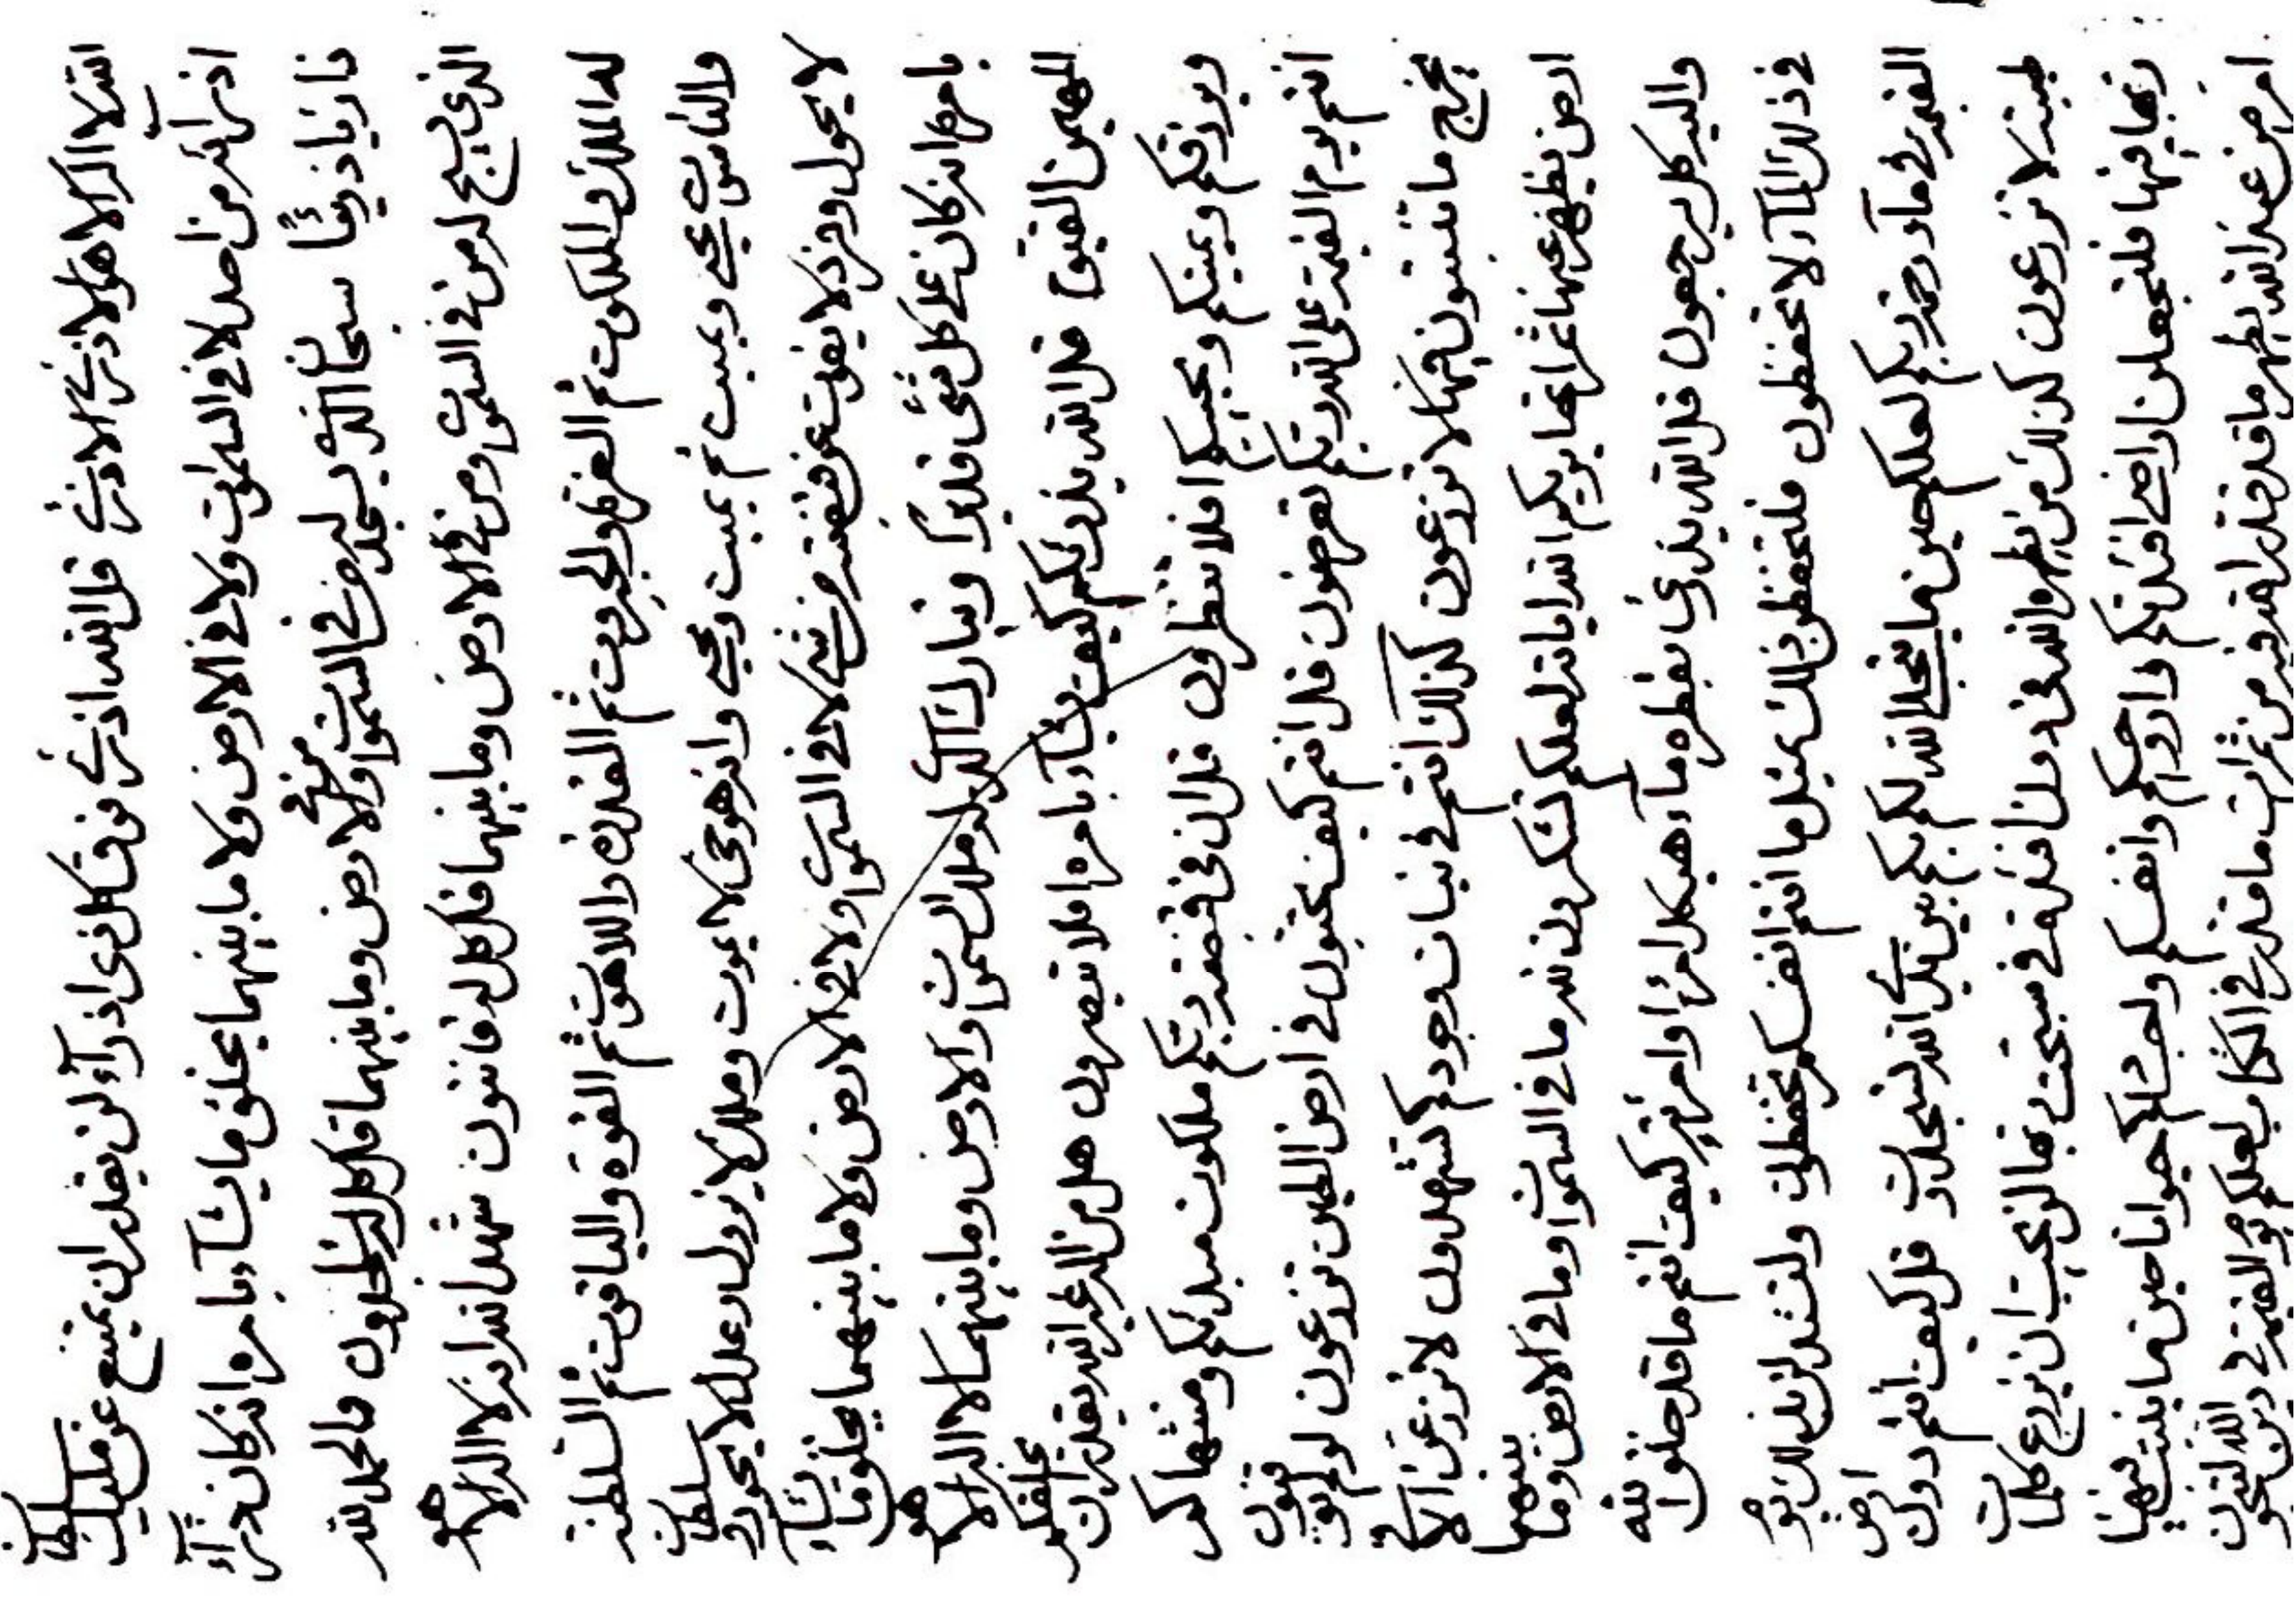 الله لا اله الا هو الاذرء الاذرء قل الله اذرء فوق كل ذی اذرآء لن يقدر ان يمتنع عن مليك سلطان
اذرآئه من احد لا فی السموات ولا فی الارض ولا ما بينهما يخلق ما يشآء بامره انه كان ذرآء
ذارئا ذريئا سبحان الذی يسجد له من فی السموات ومن فی الارض وما بينهما قل كل له ساجدون والحمد لله
الذی يسبح له من فی السموات ومن فی الارض وما بينهما قل كل له قانتون شهد الله انه لا اله الا هو
له الملك والملكوت ثم العز والجبروت ثم القدرة واللاهوت ثم القوة والياقوت ثم السلطنة
والناسوت يحيی ويميت ثم يميت ويحيی وانه هو حی لا يموت وملك لا يزول وعدل لا يجور وسلطان
لا يحول وفرد لا يفوت عن قبضته من شیء لا فی السموات ولا فی الارض ولا ما بينهما يخلق ما يشآء
بامره انه كان علی كل شیء قديرا وتبارك الذی له ملك السموات والارض وما بينهما لا اله الا هو
المهيمن القيوم قل الله يذرئكم كيف يشآء بامره افلا تبصرون هل من اله غير الله يقدر ان يخلقكم
ويرزقكم ويميتكم ويحييكم افلا تنظرون قل ان فی قبضة ربكم ملكوت مبدئكم ومنتهاكم
انتم يوم القيمة علی الله ربكم تعرضون قل انتم كيف تحبون فی ارض الطين تزرعون لو لم
يخرج ما تنبتون فيها لا تزرعون كذلك انتم فی نبات وجودكم لتشهدون لا تزرعن الا فی
ارض يظهر عنها ثمراتها يريكم الله اياته لعلكم تشكرون لله ما فی السموات وما فی الارض وما بينهما
واليه كل يرجعون قل الله يذرئ بفطرة مآء هيكل امرئ او امرئة كيف انتم ما قد خلق الله
فی ذلك المآء لا تحفظون فلتحفظن ذلك بمثل ما انتم انفسكم تحفظون
القيمة فی مآء وحدة ربكم لعلكم حين ما يتجلی الله لكم بكم بين يدی الله لتسجدون قل كيف انتم دون ارض
طيبة لا تزرعون كذلك من يظهره الله فی دون افئدة
ربما فيها فلتجعلن اراضی افئدتكم وارواحكم وانفسكم واجسادكم حيوانا حين ما ينبت فيها
امر من عند الله يظهر ما قد قدر الله فيه من ثمرات ما قدر فی الكتاب لعلكم يوم القيمة فی دين الله لتنجون